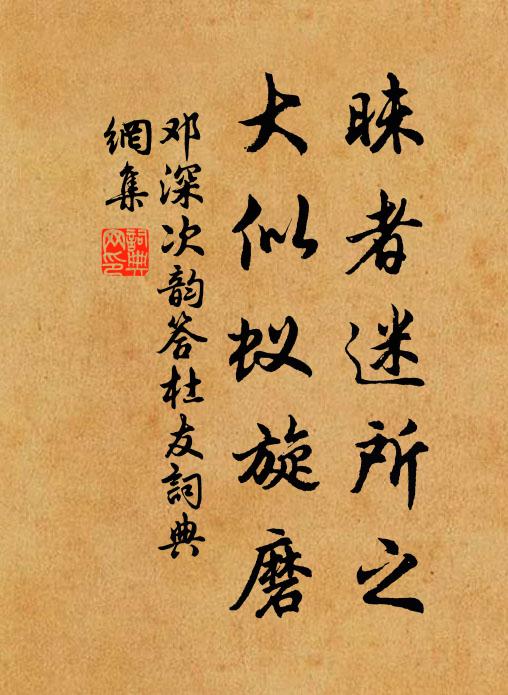 昧者迷所之
大似蚁旋磨
邓深次韵答杜友詞典
網集
詞典網印